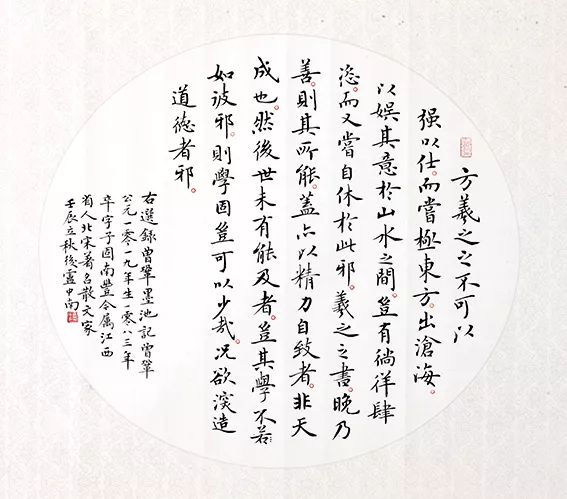 方羲之之不可以
强以仕。而嘗極東方。出滄海。
以娱其意於山水之間。豈有徜徉肆
恣。而又嘗自休於此邪。羲之之書。晚乃
善。則其所能。蓋亦以精力自致者。非天
成也。然後世未有能及者。豈其學不若
如彼邪。則學固豈可以少哉。况欲深造
道德者邪。
右選録曾鞏墨池記曾鞏
公元一〇一九年生一〇八三年
卒字子固南豐今属江西
省人北宋著名散文家
壬辰立秋後盧中南